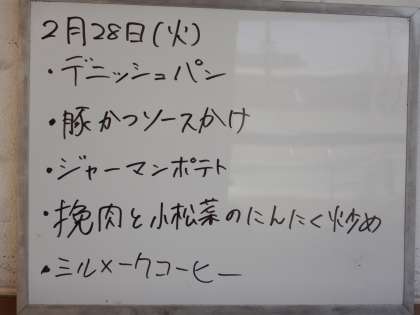 2月28日(火)
・デニッシュパン
・豚かつソースかけ
・ジャーマンポテト
・挽肉と小松菜のにんにく炒め
・ミルメークコーヒー